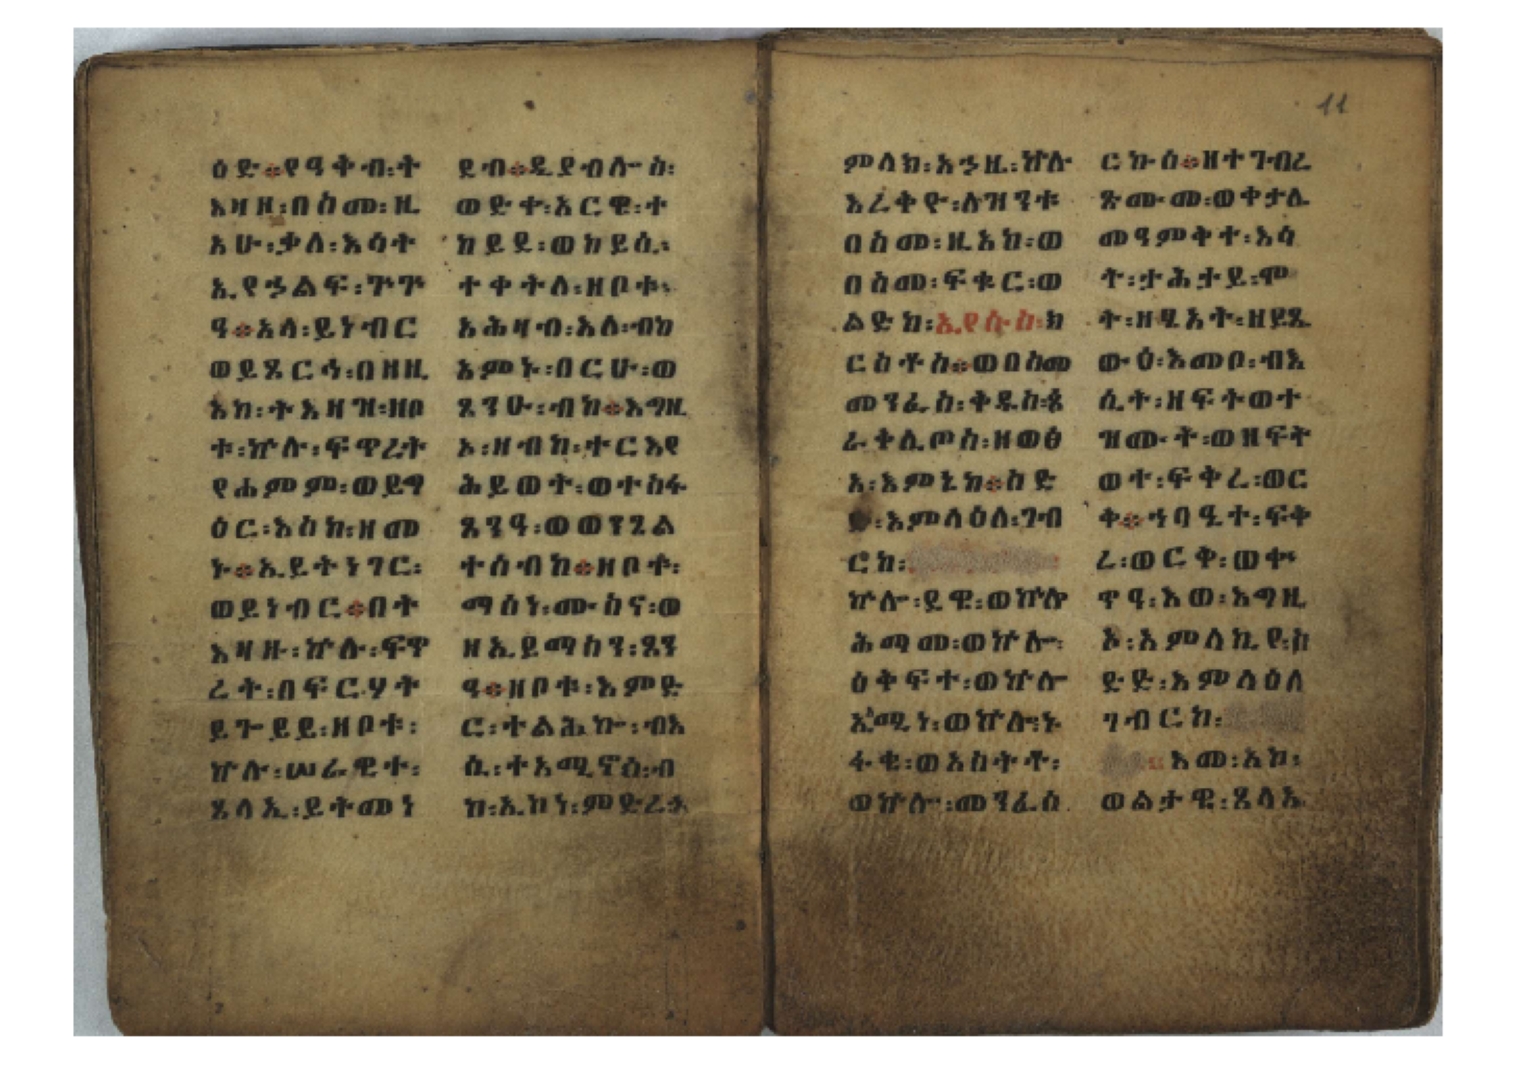 ዕድ፨የዓቅብ፡ት
እዛዘ፡በስመ፡ዚ
አሁ፡ቃለ፡እሳት
ኢየኃልፍ፡ጕጕ
ዓ፨አላ፡ይነብር
ወይጼርኅ፡በዘዚ
እከ፡ትእዛዝ፡ዘቦ
ቱ፡ኵሉ፡ፍጥረት
የሐምም፡ወይዋ
ዕር፡እስከ፡ዘመ
ኑ፨ኢይትነገር፡
ወይነብር፨በት
እዛዙ፡ኵሉ፡ፍጥ
ረት፡በፍርሃት
ይጐይይ፡ዘቦቱ፡
ኵሉ፡ሠራዊተ፡
ጸላኢ፡ይትመነ
ደብ፨ዲያብሎስ፡
ወድቀ፡አርዌ፡ተ
ከይደ፡ወከይሲ፡
ተቀትለ፡ዘቦቱ፡
አሕዛብ፡እለ፡ብከ
እምኑ፡በርሁ፡ወ
ጸንዑ፡ብከ፨እግዚ
ኦ፡ዘብከ፡ተርእየ
ሕይወት፡ወተስፋ
ጸንዓ፡ወወንጌል
ተሰብከ፨ዘቦቱ፡
ማሰነ፡ሙስና፡ወ
ዘኢይማስን፡ጸን
ዓ፨ዘቦቱ፡እምድ
ር፡ተልሕኰ፡ብእ
ሲ፡ተአሚኖሰ፡ብ
ከ፡ኢኮነ፡ምድረዓ
ምላክ፡አኃዚ፡ኵሉ
እረቅዮ፡ለዝንቱ
በስመ፡ዚአከ፡ወ
በስመ፡ፍቁር፡ወ
ልድከ፡ኢየሱስ፡ክ
ርስቶስ፨ወበስመ
መንፈስ፡ቅዱስ፡ጰ
ራቅሊጦስ፡ዘወፅ
አ፡እምኔከ፨ስድ
ድ፡እምላዕለ፡ገብ
ርከ፡
ኵሎ፡ደዌ፡ወኵሎ
ሕማመ፡ወኵሎ፡
ዕቅፍተ፡ወኵሎ
ኢሚነ፡ወኵሎ፡ኑ
ፋቄ፡ወአስትቶ፡
ወኵሎ፡መንፈሰ
ርኩሰ፨ዘተገብረ
ጽሙመ፡ወቀታሌ
መዓምቅተ፡እሳ
ት፡ታሕታይ፡ሞ
ት፡ዘዊእት፡ዘይጼ
ውዕ፡እመቦ፡ብእ
ሲት፡ዘፍትወተ
ዝሙት፡ወዘፍት
ወተ፡ፍቅረ፡ወር
ቅ፨ኀባዒተ፡ፍቅ
ረ፡ወርቅ፡ወቍ
ጥዓ፡እወ፡እግዚ
ኦ፡አምላኪየ፡ስ
ድድ፡እምላዕለ
ገብርከ፡
እመ፡አኮ፡
ወልታዊ፡ጸላኤ